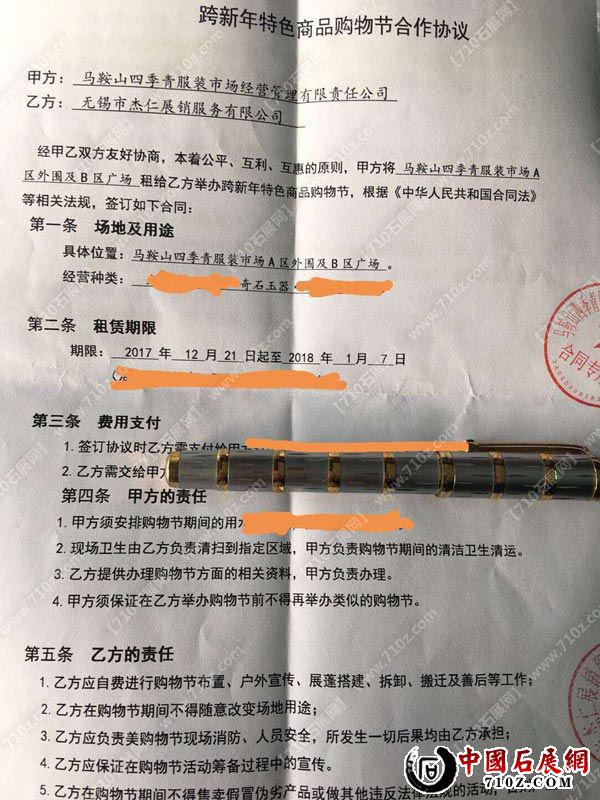 跨新年特色商品购物节合作协议
甲方： 马鞍山四季青服装市场经营管理有限责任公司
乙方： 无锡市杰仁展销服务有限公司
经甲乙双方友好协商，本着公平、互利、互惠的原则，甲方将 马鞍山四季青服装市场A
区外围及B区广场 租给乙方举办跨新年特色商品购物节，根据《中华人民共和国合同法》
等相关法规，签订如下合同：
第一条 场地及用途
具体位置： 马鞍山四季青服装市场A区外围及B区广场 。
经营种类： 奇石玉器
第二条 租赁期限
期限： 2017 年 12 月 21 日起至 2018 年 1 月 7 日
第三条 费用支付
1. 签订协议时乙方需支付给甲方
2. 乙方需交给甲方
第四条 甲方的责任
1. 甲方须安排购物节期间的用水
2. 现场卫生由乙方负责清扫到指定区域，甲方负责购物节期间的清洁卫生清运。
3. 乙方提供办理购物节方面的相关资料，甲方负责办理。
4. 甲方须保证在乙方举办购物节前不得再举办类似的购物节。
第五条 乙方的责任
1. 乙方应自费进行购物节布置、户外宣传、展蓬搭建、拆卸、搬迁及善后等工作；
2. 乙方在购物节期间不得随意改变场地用途；
3. 乙方应负责美购物节现场消防、人员安全，所发生一切后果均由乙方承担；
4. 乙方应保证在购物节活动筹备过程中的宣传。
5. 乙方在购物节期间不得售卖假冒伪劣产品或做其他违反法律法规的活动，
合同专用
中國石展網
710Z.COM
【710石展网】
www.710z.com